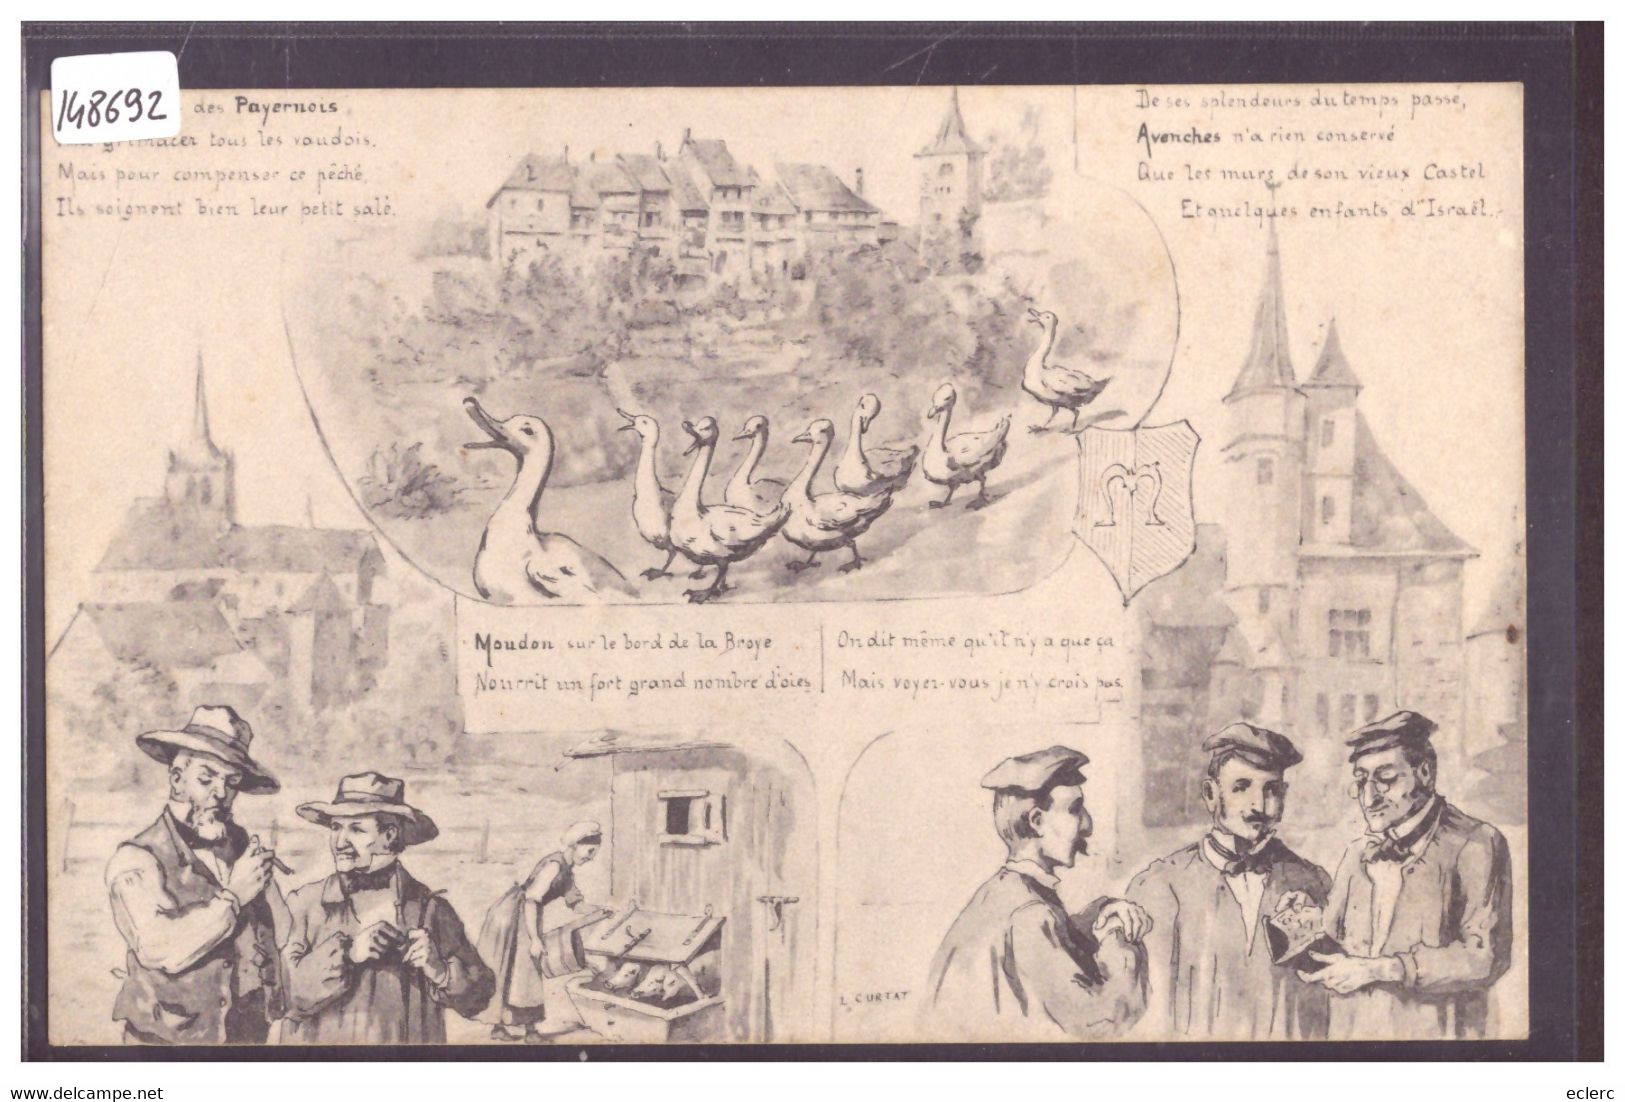 148692
des Payernois
tous les vaudois.
Mais pour compenser ce pêché,
Ils soignent bien leur petit salé.
De ses splendeurs du temps passé,
Avenches n'a rien conservé
Que les murs de son vieux Castel
Et quelques enfants d'Israël.
Moudon sur le bord de la Broye
Nourrit un fort grand nombre d'oies
On dit même qu'il n'y a que ça
Mais voyez-vous je n'y crois pas.
L. CURTAT
eclerc
www.delcampe.net